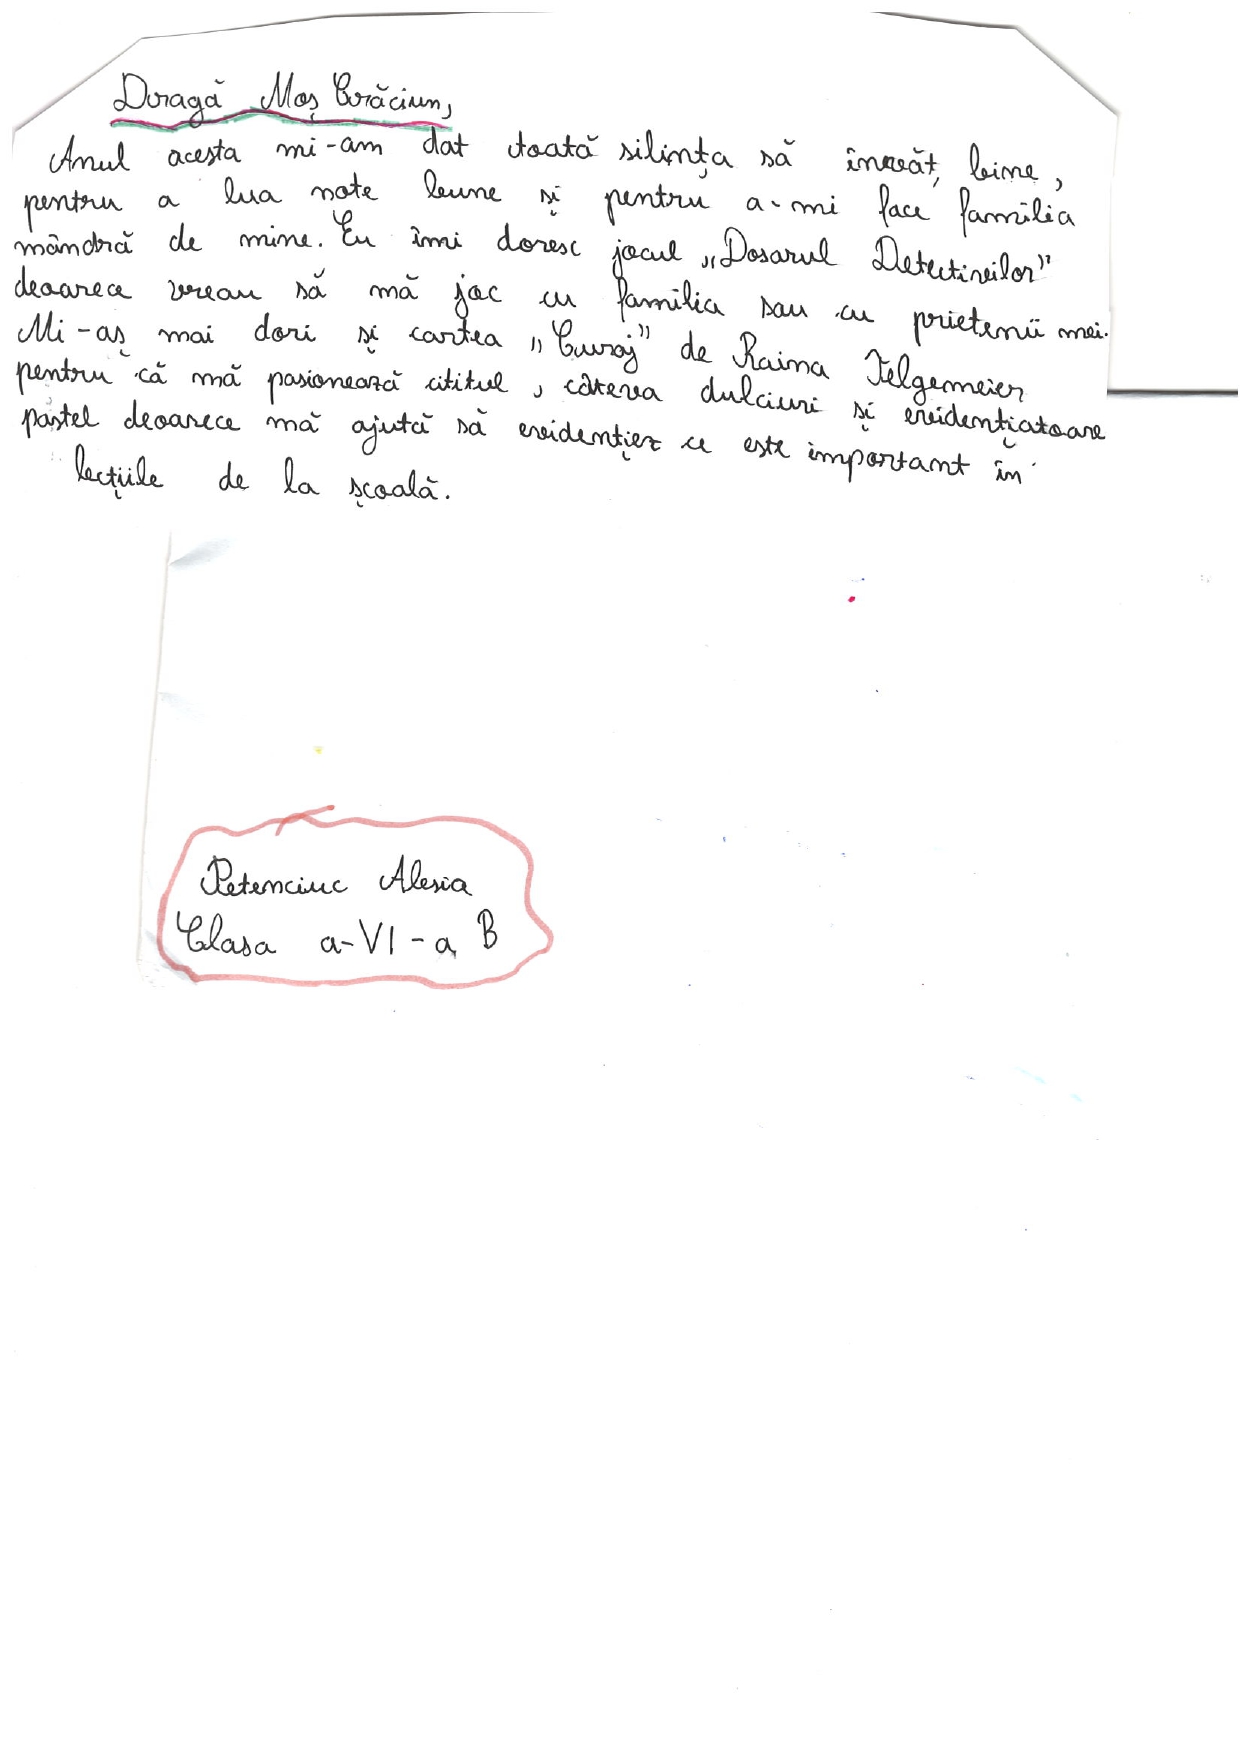 Dragă Moș Crăciun,
Anul acesta mi-am dat toată silința să învăț bine,
pentru a lua note bune și pentru a-mi face familia
mândră de mine. Eu îmi doresc jocul „Dosarul Detectivilor"
deoarece vreau să mă joc cu familia sau cu prietenii mei.
Mi-aș mai dori și cartea „Curaj" de Raina Telgemeier
pentru că mă pasionează cititul, câteva dulciuri și evidențiatoare
pastel deoarece mă ajută să evidențiez ce este important în
lecțiile de la școală.
Petenciuc Alesia
Clasa a-VI-a B